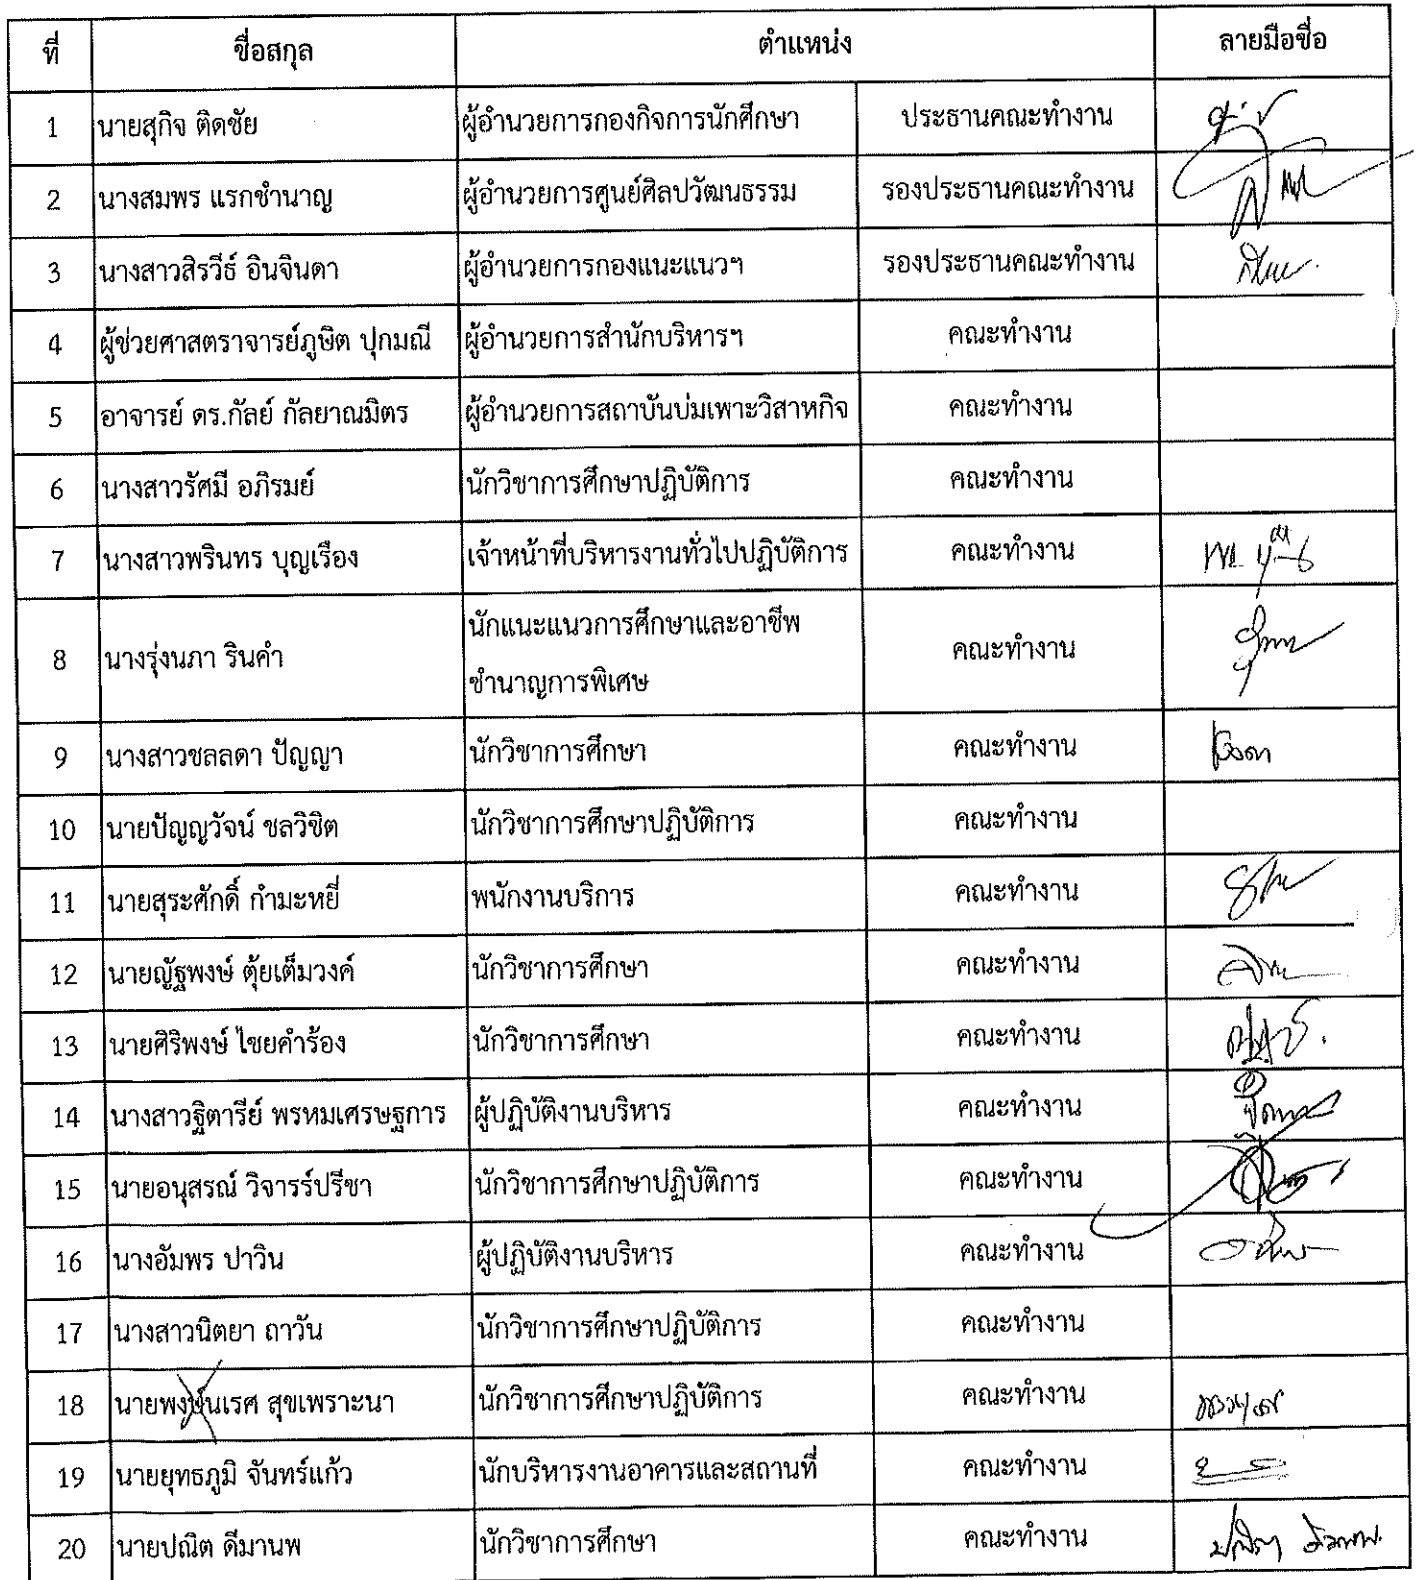 ที่ ชื่อสกุล ตำแหน่ง ลายมือชื่อ
1 นายสุกิจ ติดชัย ผู้อำนวยการกองกิจการนักศึกษา ประธานคณะทำงาน
2 นางสมพร แรกชำนาญ ผู้อำนวยการศูนย์ศิลปวัฒนธรรม รองประธานคณะทำงาน
3 นางสาวสิรวีธ์ อินจินดา ผู้อำนวยการกองแนะแนวฯ รองประธานคณะทำงาน
4 ผู้ช่วยศาสตราจารย์ภูษิต ปุกมณี ผู้อำนวยการสำนักบริหารฯ คณะทำงาน
5 อาจารย์ ดร.กัลย์ กัลยาณมิตร ผู้อำนวยการสถาบันบ่มเพาะวิสาหกิจ คณะทำงาน
6 นางสาวรัศมี อภิรมย์ นักวิชาการศึกษาปฏิบัติการ คณะทำงาน
7 นางสาวพรินทร บุญเรือง เจ้าหน้าที่บริหารงานทั่วไปปฏิบัติการ คณะทำงาน
8 นางรุ่งนภา รินคำ นักแนะแนวการศึกษาและอาชีพ คณะทำงาน
ชำนาญการพิเศษ
9 นางสาวชลลดา ปัญญา นักวิชาการศึกษา คณะทำงาน
10 นายปัญญวัจน์ ชลวิชิต นักวิชาการศึกษาปฏิบัติการ คณะทำงาน
11 นายสุระศักดิ์ กำมะหยี่ พนักงานบริการ คณะทำงาน
12 นายณัฐพงษ์ ตุ้ยเต็มวงค์ นักวิชาการศึกษา คณะทำงาน
13 นายศิริพงษ์ ไชยคำร้อง นักวิชาการศึกษา คณะทำงาน
14 นางสาวฐิตารีย์ พรหมเศรษฐการ ผู้ปฏิบัติงานบริหาร คณะทำงาน
15 นายอนุสรณ์ วิจารร์ปรีชา นักวิชาการศึกษาปฏิบัติการ คณะทำงาน
16 นางอัมพร ปาวิน ผู้ปฏิบัติงานบริหาร คณะทำงาน
17 นางสาวนิตยา ถาวัน นักวิชาการศึกษาปฏิบัติการ คณะทำงาน
18 นายพงษ์นเรศ สุขเพราะนา นักวิชาการศึกษาปฏิบัติการ คณะทำงาน
19 นายยุทธภูมิ จันทร์แก้ว นักบริหารงานอาคารและสถานที่ คณะทำงาน
20 นายปณิต ดีมานพ นักวิชาการศึกษา คณะทำงาน